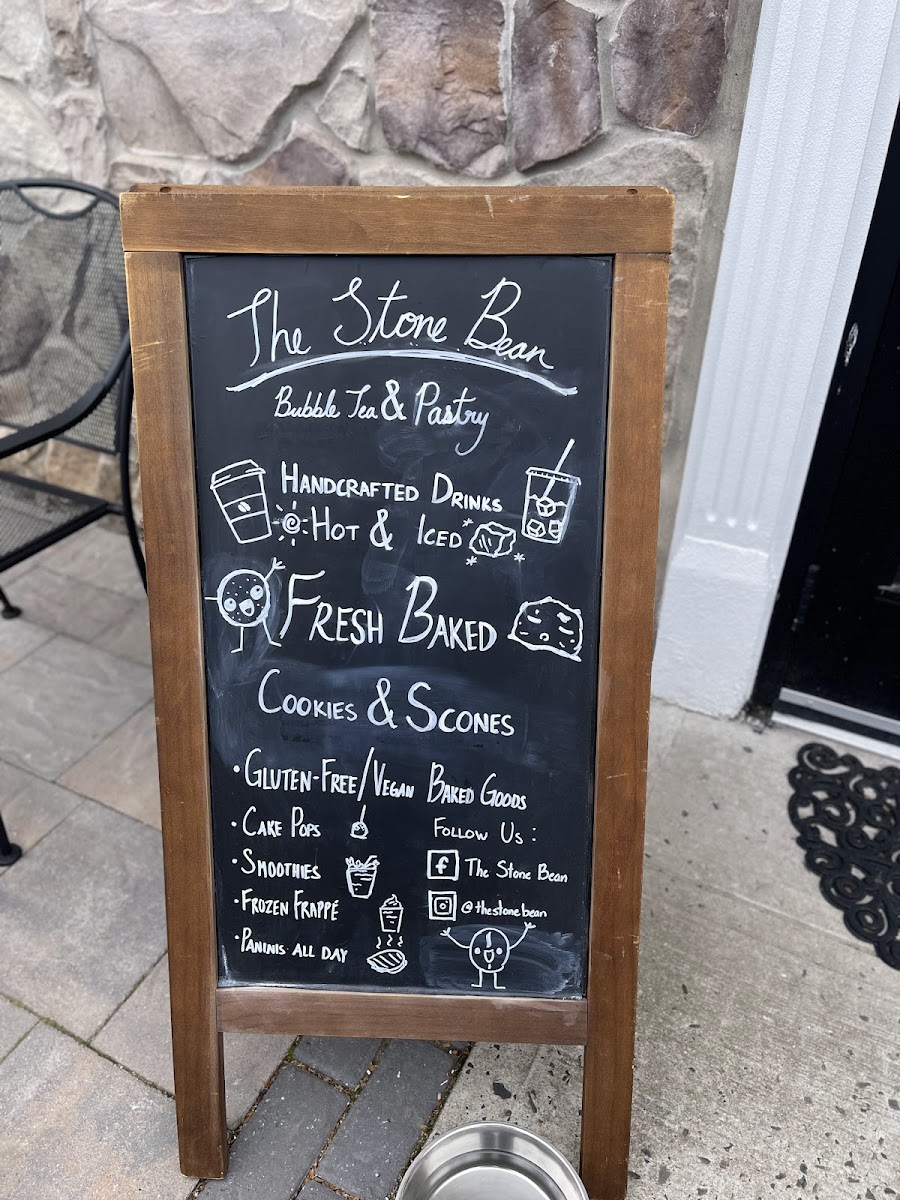 The Stone Bean
Bubble Tea & Pastry
HANDCRAFTED DRINKS
HOT & ICED
FRESH BAKED
COOKIES & SCONES
• GLUTEN-FREE/VEGAN BAKED GOODS
• CAKE POPS
• SMOOTHIES
• FROZEN FRAPPÉ
• PANINIS ALL DAY
FOLLOW US:
f The Stone Bean
@thestonebean